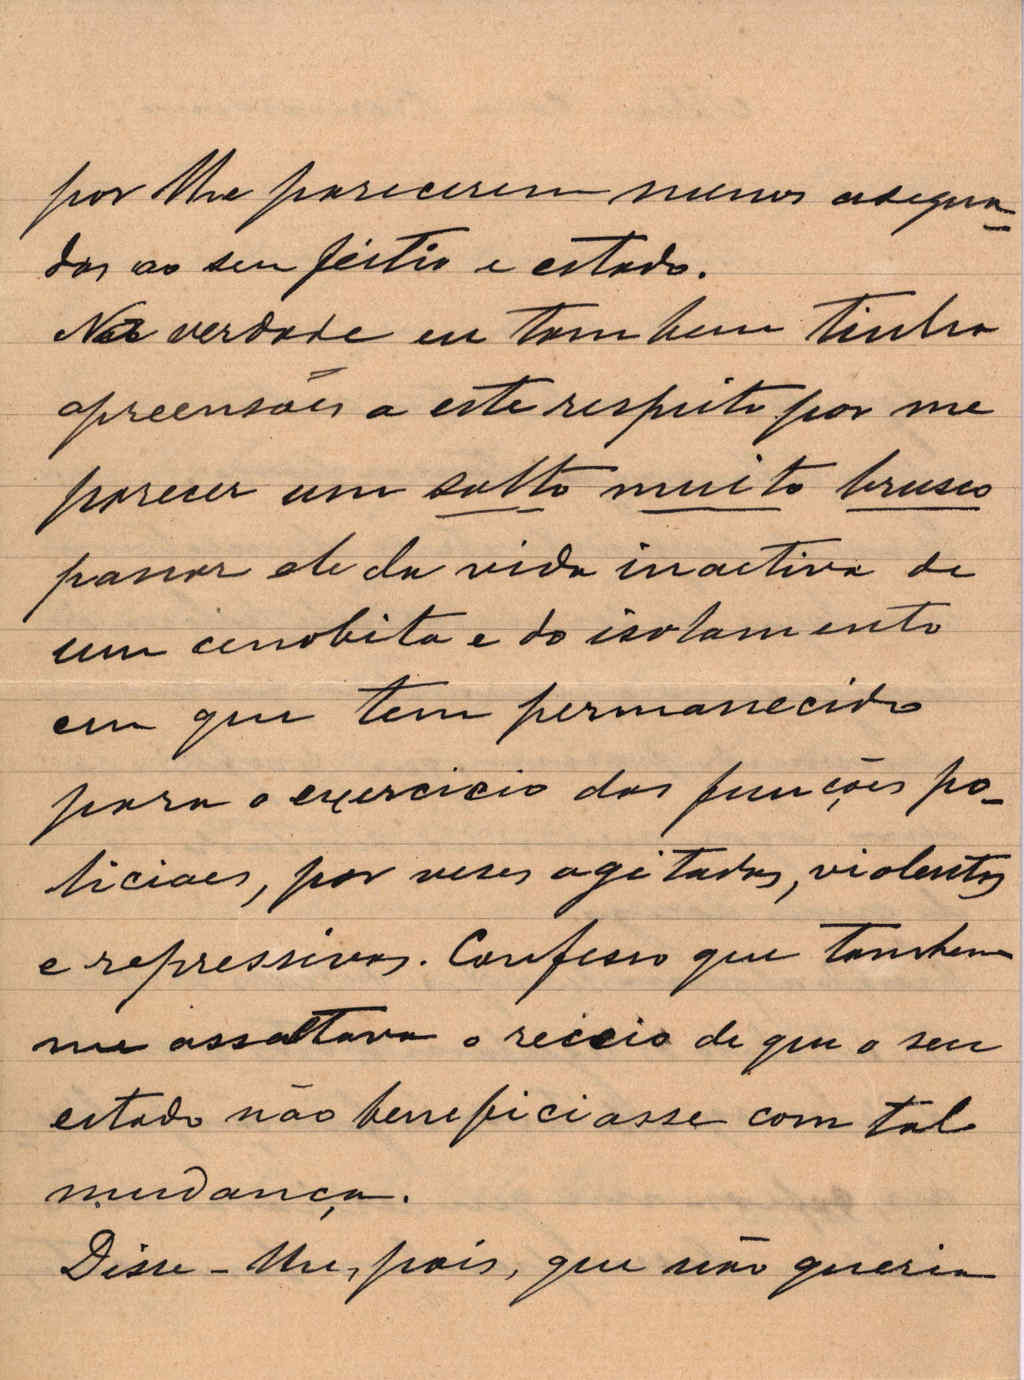 por lhe parecerem menos adequa-
dos ao seu feitio e estado.
Na verdade eu tambem tinha
apreensões a este respeito por me
parecer um salto muito brusco
passar ele da vida inactiva de
um cenobita e do isolamento
em que tem permanecido
para o exercicio das funções po-
liciaes, por veses agitadas, violentas
e repressivas. Confesso que tambem
me assaltava o receio de que o seu
estado não beneficiasse com tal
mudança.
Disse-lhe, pois, que não queria